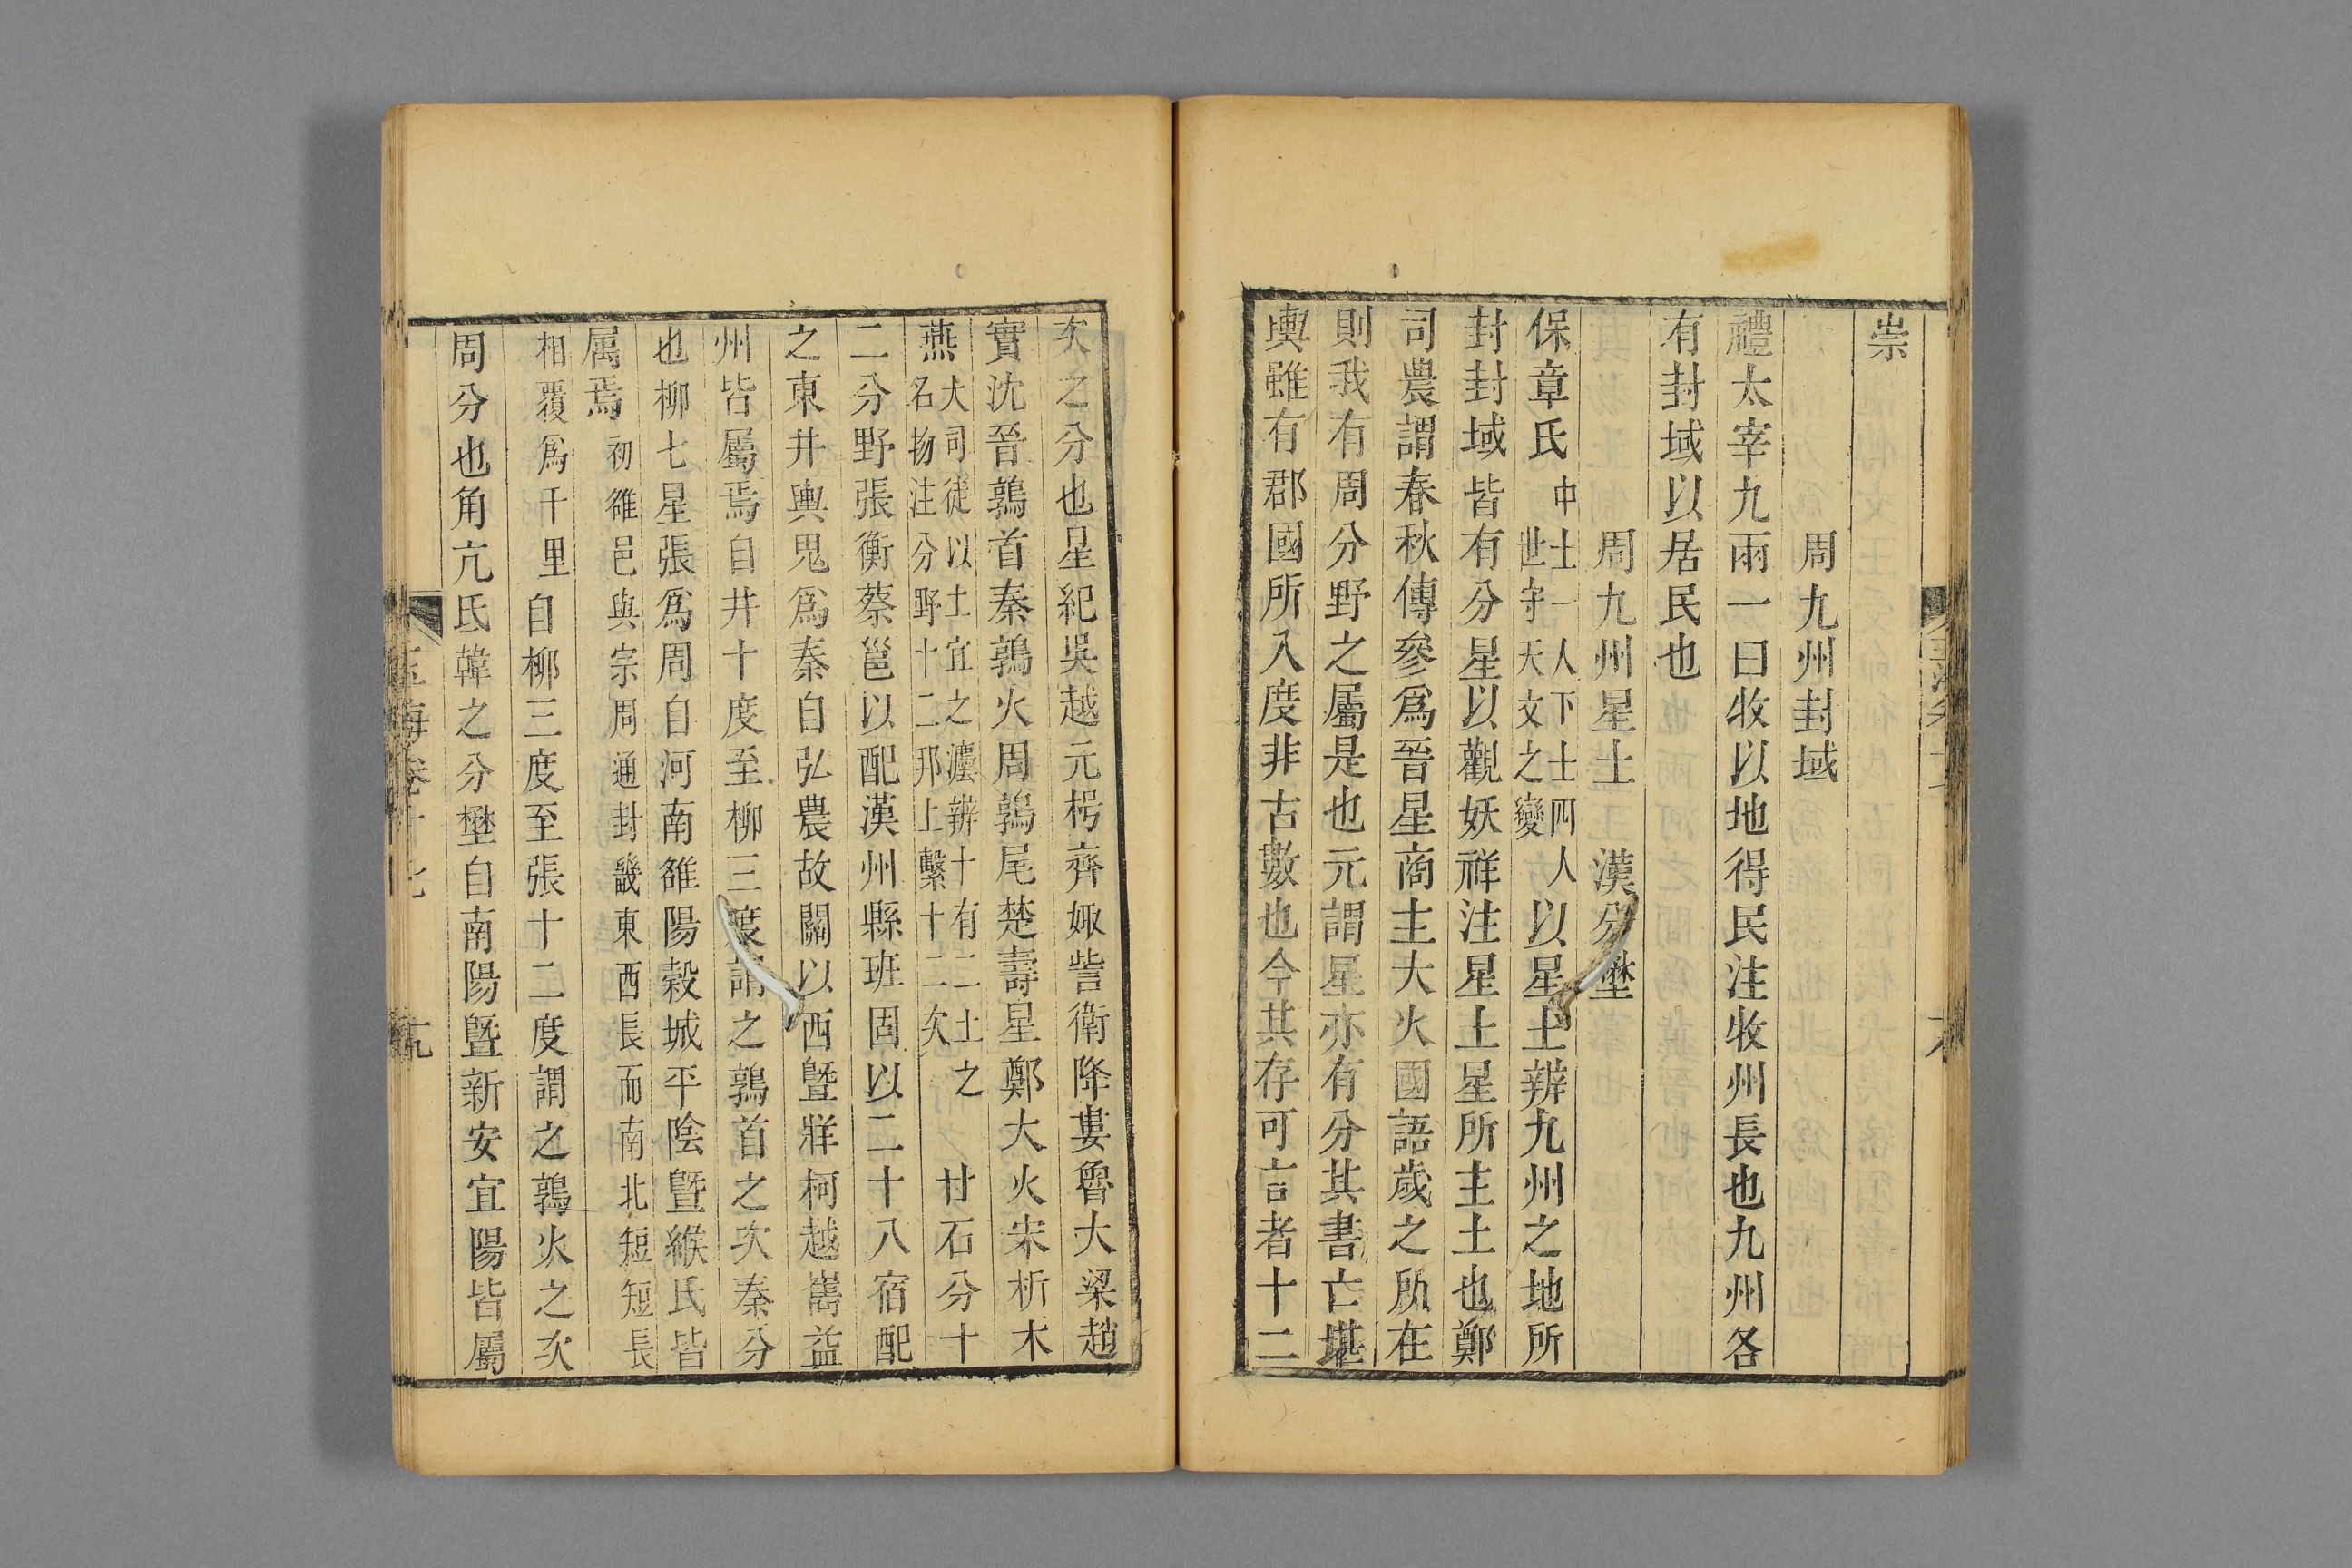 崇
周九州封域
禮太宰九兩一曰牧以地得民注牧州長也九州各
有封域以居民也
周九州星土 漢分壄
保章氏中士一人下士四人世守天文之變以星土辨九州之地所
封封域皆有分星以觀妖祥注星土星所主土也鄭
司農謂春秋傳參爲晉星商主大火國語歲之所在
則我有周分野之屬是也元謂星亦有分其書亡堪
輿雖有郡國所入度非古數也今其存可言者十二
次之分也星紀吳越元枵齊娵訾衛降婁魯大梁趙
實沈晉鶉首秦鶉火周鶉尾楚壽星鄭大火宋析木
燕大司徒以土宜之灋辨十有二土之名物注分野十二邦上繫十二次 甘石分十
二分野張衡蔡邕以配漢州縣班固以二十八宿配
之東井輿鬼爲秦自弘農故關以西曁牂柯越嶲益
州皆屬焉自井十度至柳三度謂之鶉首之次秦分
也柳七星張爲周自河南雒陽穀城平陰曁緱氏皆
属焉初雒邑與宗周通封畿東西長而南北短短長
相覆爲千里自柳三度至張十二度謂之鶉火之次
周分也角亢氐韓之分壄自南陽曁新安宜陽皆屬
玉海卷十七